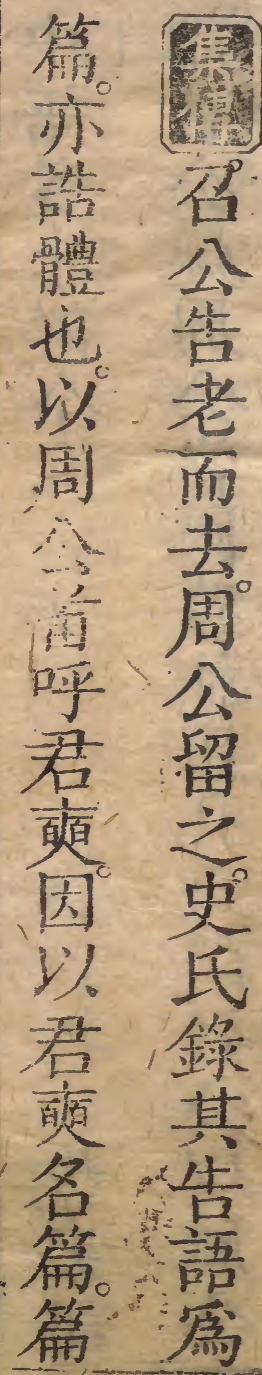 集傳召公告老而去。周公留之。史氏錄其告語爲
篇。亦誥體也。以周公首呼君奭。因以君奭名篇。篇